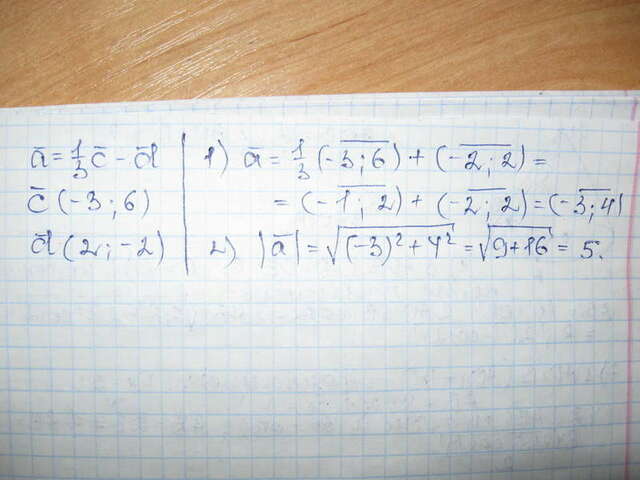 ā = 1/3 c̄ - d̄
c̄ (-3; 6)
d̄ (2; -2)
1) ā = 1/3 (-3; 6) + (-2; 2) =
= (-1; 2) + (-2; 2) = (-3; 4)
2) |ā| = √((-3)² + 4²) = √(9+16) = 5.